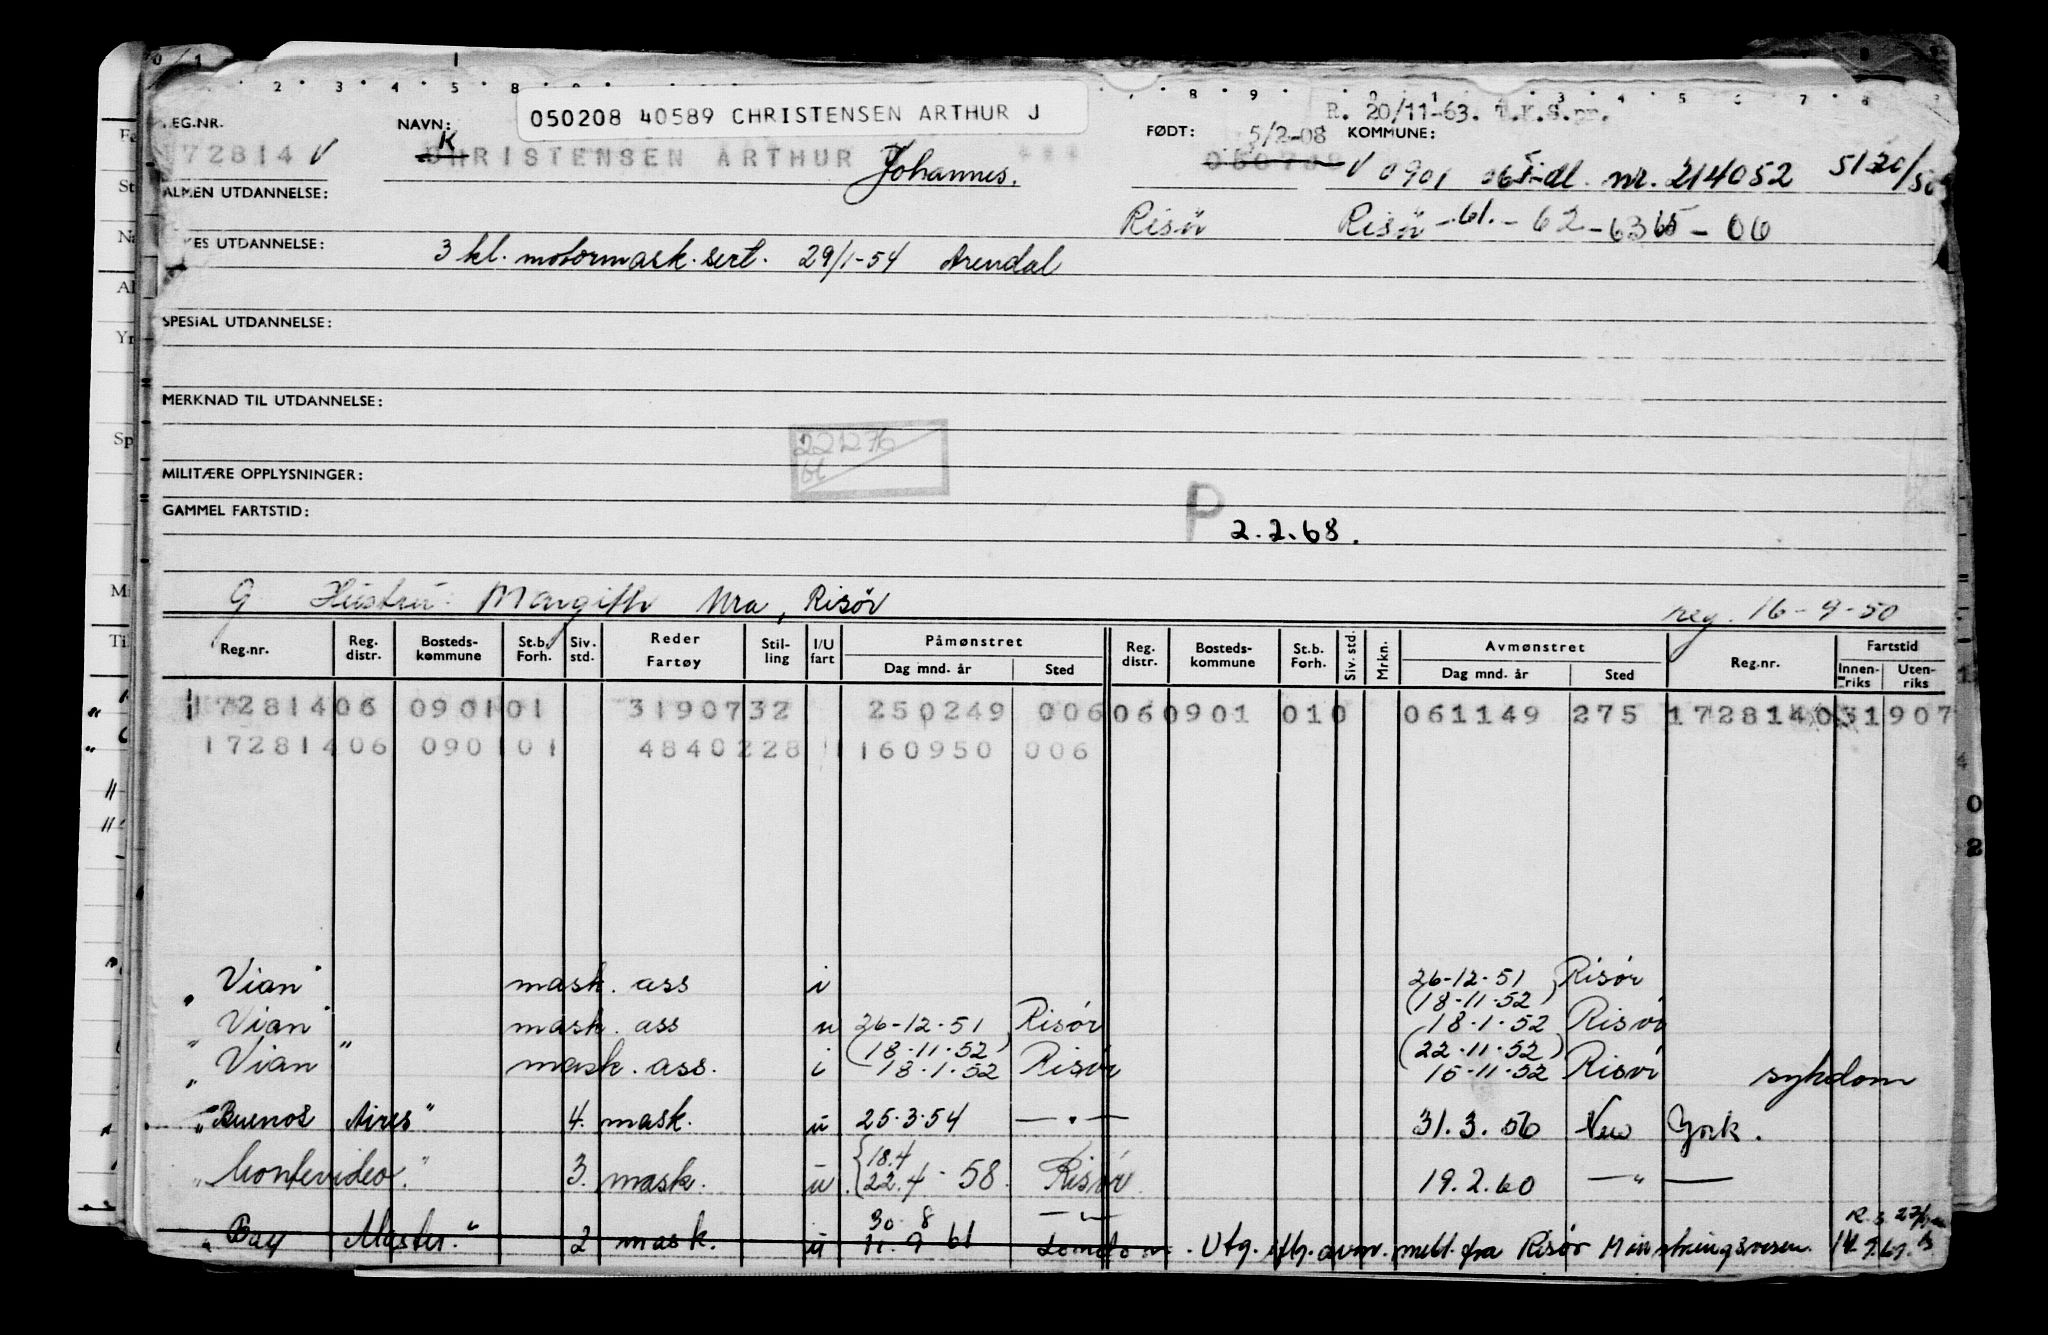 050208 40589 CHRISTENSEN ARTHUR J
R. 20/11-63. T.K.S.pr.
REG.NR. NAVN: FØDT: 5/2-08 KOMMUNE:
172814 V K CHRISTENSEN ARTHUR Johannes. 050708 V 0901 06 Tidl. nr. 214052 5120/50
ALMEN UTDANNELSE: Risør Risør -61.- 62 - 63 65 - 06
YRKES UTDANNELSE: 3 kl. motormask. sert. 29/1-54 Arendal
SPESIAL UTDANNELSE:
MERKNAD TIL UTDANNELSE:
221276
MILITÆRE OPPLYSNINGER:
GAMMEL FARTSTID: P 2.2.68.
G Hustru: Margith Ura, Risør reg. 16-9-50
Reg.nr. Reg. distr. Bosteds-kommune St.b. Forh. Siv. std. Reder Fartøy Stil-ling I/U fart Påmønstret Dag mnd. år Sted Reg. distr. Bosteds-kommune St.b. Forh. Siv. std. Mrkn. Avmønstret Dag mnd. år Sted Reg.nr. Fartstid Innen-riks Uten-riks
17281406 090101 3190732 250249 006 060901 010 061149 275 172814031907
17281406 090101 4840228 160950 006
"Vian" mask. ass i 26-12-51 Risør
"Vian" mask. ass u 26-12-51 Risør (18-11-52) 18.1.52 Risør
"Vian" mask. ass. i (18-11-52) 18.1.52 Risør (22-11-52) 15-11-52 Risør sykdom
"Buenos Aires" 4. mask. u 25.3.54 — " — 31.3.56 New York.
"Montevideo." 3. mask. u {18.4 22.4 - 58. Risør 19.2.60 — " —
"Bay Master." 2 mask. u 30 8 11.9 61 London. Utg. ifh. avm. meld. fra Risør Mønstringsvesen 14.9.61.